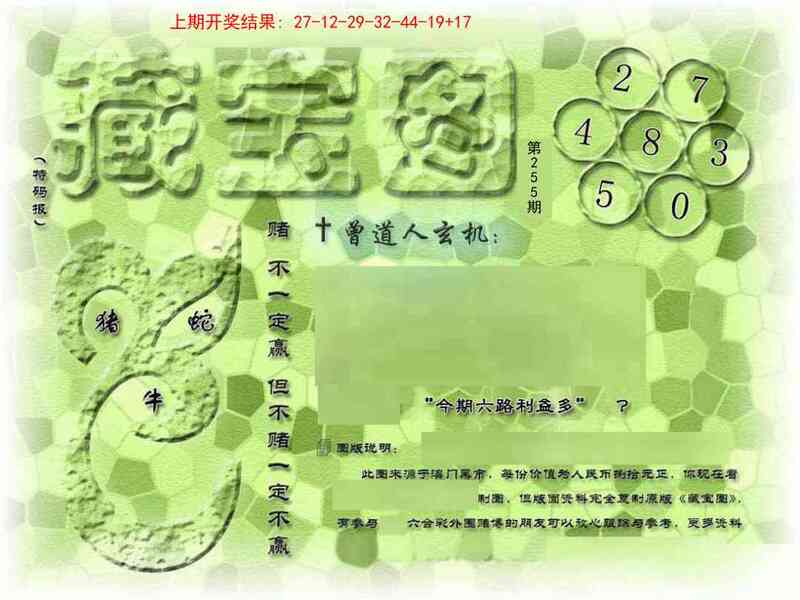 上期开奖结果: 27-12-29-32-44-19+17
藏宝图
（特码报）
第255期
2 7
4 8 3
5 0
曾道人玄机:
赌不一定赢 但不赌一定不赢
猪 蛇
牛
"今期六路利益多" ?
图版说明:
此图来源于澳门黑市，每份价值为人民币捌拾元正，你现在看
制图，但版面资料完全复制原版《藏宝图》，
有参与 六合彩外围赌博的朋友可以放心跟踪与参考，更多资料